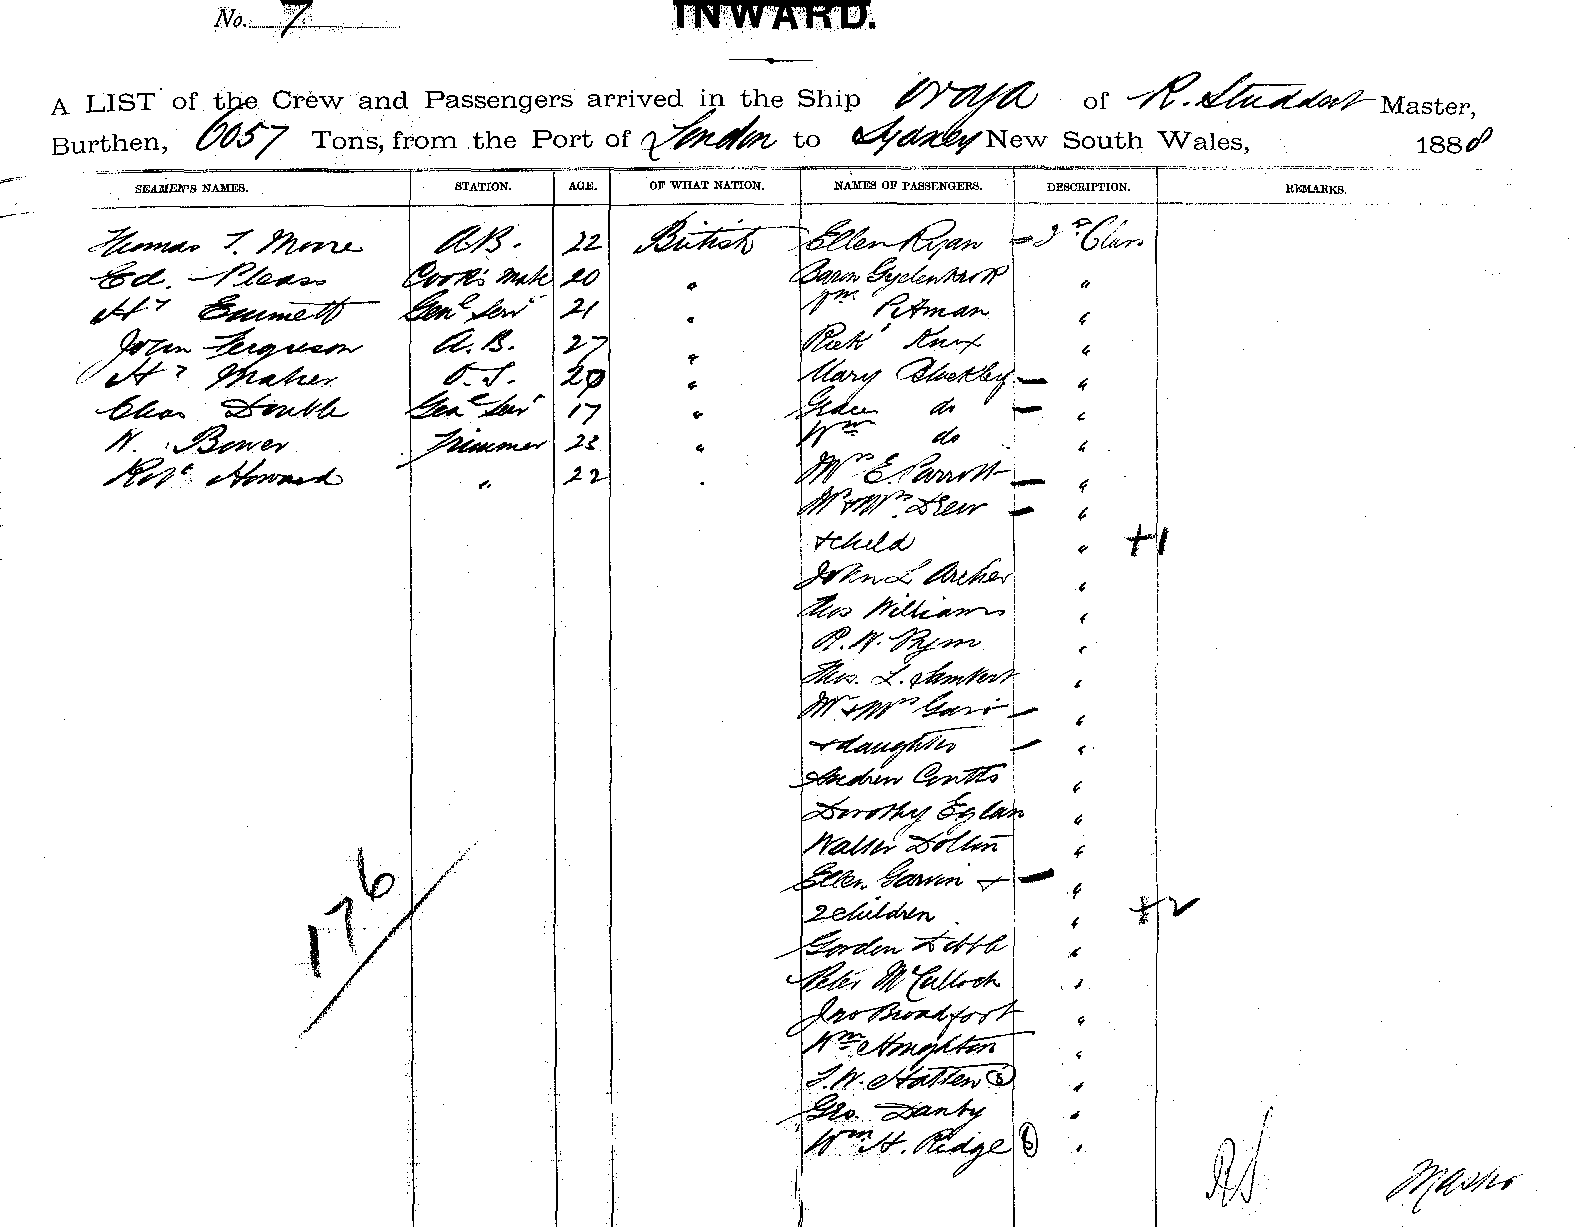 No. 7
INWARD.
A LIST of the Crew and Passengers arrived in the Ship Oroya of R. Studdert Master,
Burthen, 6057 Tons, from the Port of London to Sydney New South Wales, 1888
SEAMEN'S NAMES. STATION. AGE. OF WHAT NATION. NAMES OF PASSENGERS. DESCRIPTION. REMARKS.
Thomas T. Moore A.B. 22 British Ellen Ryan - 2d Class
Ed. Pleass Cook's Mate 20 " Baron "
Hy Emmett Genl Servt 21 " Wm Pitman "
John Ferguson A.B. 27 " Richd Knox "
Hy Maher O.S. 20 " Mary Bluckley - "
Chas Double Genl Servt 17 " Grace do - "
W. Bower Trimmer 23 " Wm do "
Robt Howard " 22 . Mrs E Parrott - "
Mr & Mrs Drew - "
& child " +1
John L Archer "
Thos Williams "
R. W. Pym "
Thos. L. Lambert "
Mr & Mrs - "
& daughter - "
Andrew Coutts "
Dorothy Eglan "
Walter Dollin "
Ellen Garvin & - "
2 children " +2
Gordon Dibble "
Peter McCulloch "
Jno Broadfoot "
Wm Houghton "
T. W. Hatten "
Geo. Danby "
Wm H. Ridge 6 "
176
RS Master